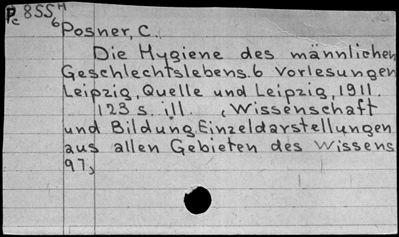 Pc 855H
6
Posner, C.
Die Hygiene des männlichen
Geschlechtslebens. 6 Vorlesungen
Leipzig, Quelle und Leipzig, 1911.
123 s. ill. (Wissenschaft
und Bildung. Einzeldarstellungen
aus allen Gebieten des Wissens
97)